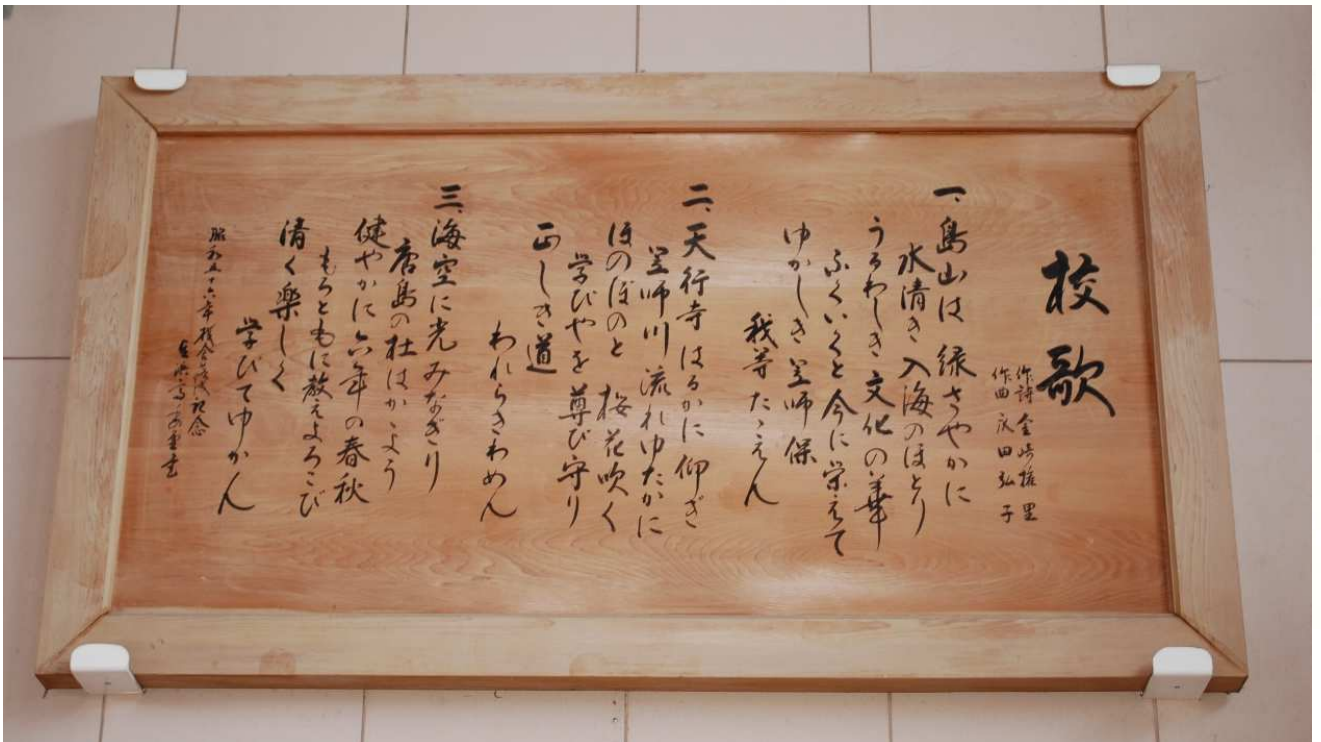 校歌
作詩 金崎
作曲 永田弘子
一、島山は 緑さやかに
水清き 入海のほとり
うるわしき 文化の華
ふくいくと今に栄えて
ゆかしき 笠師保
我等たゝえん
二、天行寺 はるかに仰ぎ
笠師川 流れゆたかに
ほのぼのと 桜花吹く
学びやを 尊び守り
正しき道
われらきわめん
三、海空に 光みなぎり
唐島の杜はかゞよう
健やかに 六年の春秋
もろともに教えよろこび
清く楽しく
学びてゆかん
昭和五十六年 記念